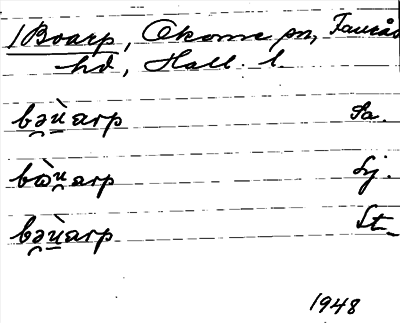 1 Boarp, Okome sn, Faurås
hd, Hall. l.
bə̯ù̱arp Sa.
bɷ̀u̯arp Lj.
bə̯ù̱arp St.
1948